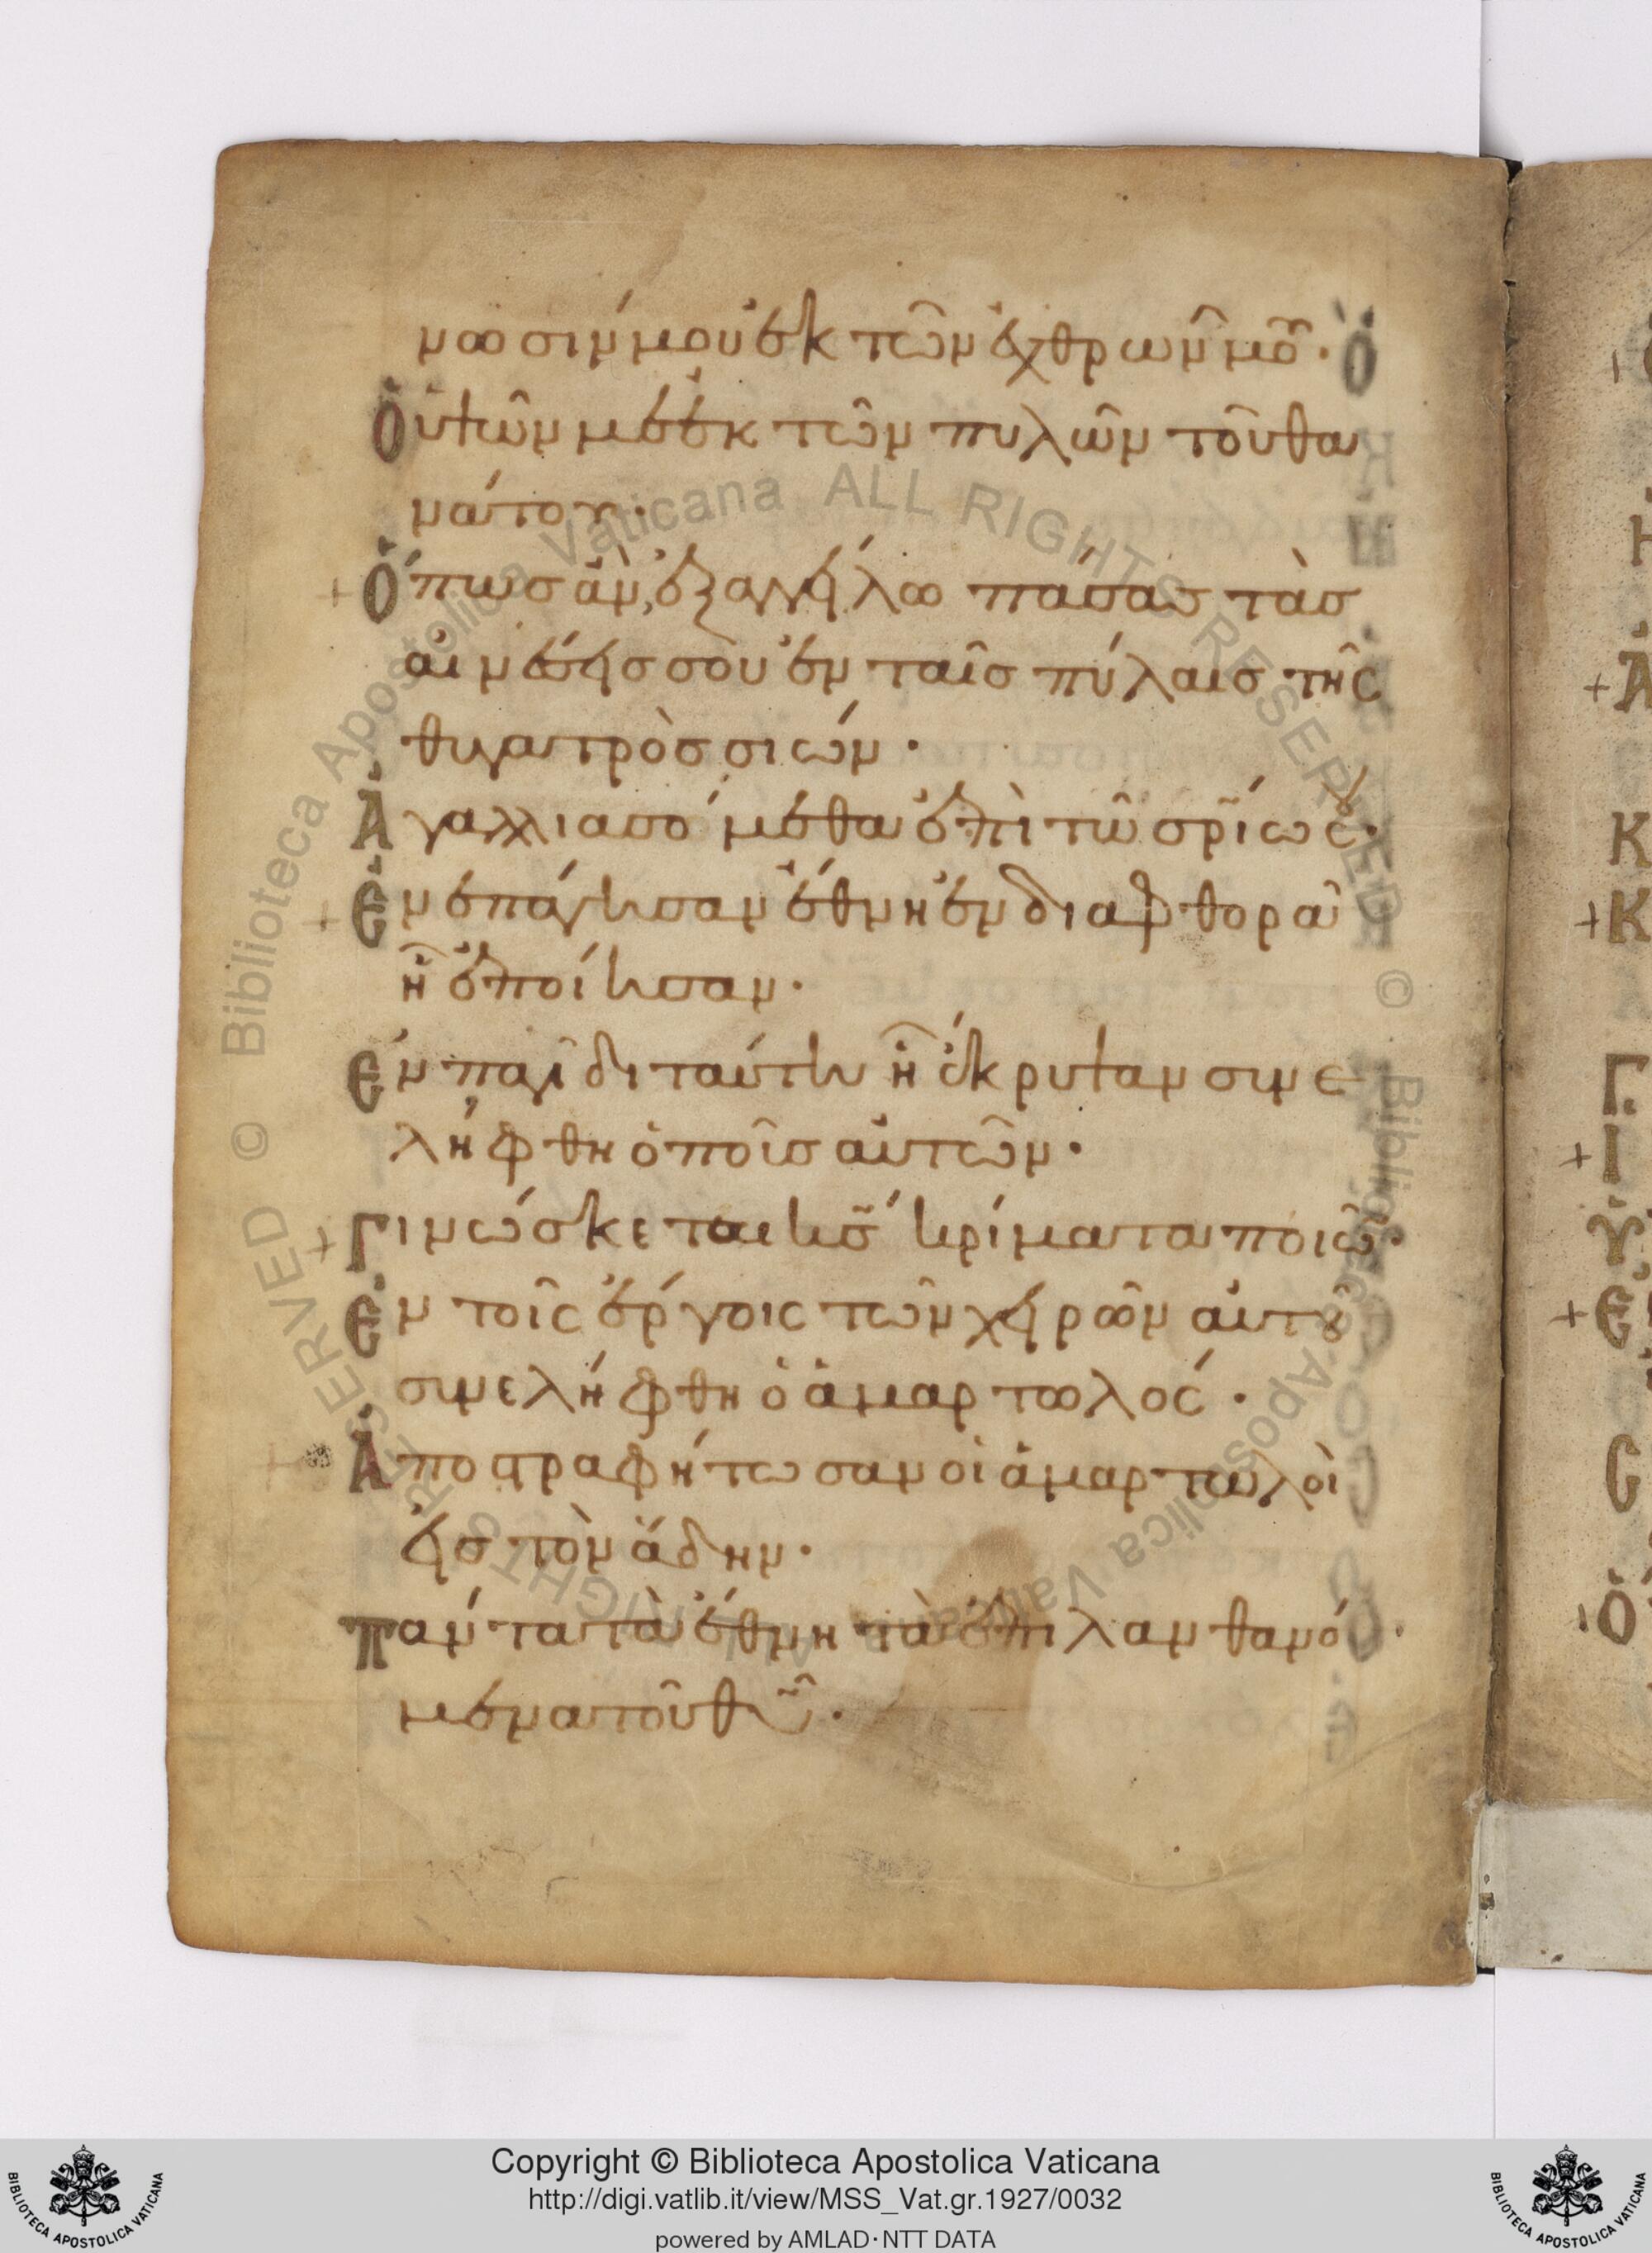 νωσίν μου ἐκ τῶν ἐχθρῶν μου·
Ὁ ὑψῶν με ἐκ τῶν πυλῶν τοῦ θα
νάτου·
+ Ὅπως ἂν ἐξαγγείλω πάσας τὰς
αἰνέσεις σου ἐν ταῖς πύλαις τῆς
θυγατρὸς σιών·
Ἀγαλλιασόμεθα ἐπὶ τῶ σρ̅ίω σου·
+ Ἐνεπάγησαν ἔθνη ἐν διαφθορᾶ
ἧ ἐποίησαν·
Ἐν παγίδι ταύτη ἧ ἔκρυψαν συνε
λήφθη ὁ ποῦς αὐτῶν·
+ Γινώσκεται κ̅ς κρίματα ποιῶν·
Ἐν τοῖς ἔργοις τῶν χειρῶν αὐτοῦ
συνελήφθη ὁ ἁμαρτωλός·
+ Ἀποστραφήτωσαν οἱ ἁμαρτωλοὶ
εἰς τὸν ἅδην·
Πάντα τὰ ἔθνη τὰ ἐπιλανθανό
μενα τοῦ θ̅υ·
Bibliotheca Apostolica Vaticana ALL RIGHTS RESERVED ©
Copyright © Biblioteca Apostolica Vaticana
http://digi.vatlib.it/view/MSS_Vat.gr.1927/0032
powered by AMLAD·NTT DATA
BIBLIOTECA APOSTOLICA VATICANA
BIBLIOTECA APOSTOLICA VATICANA